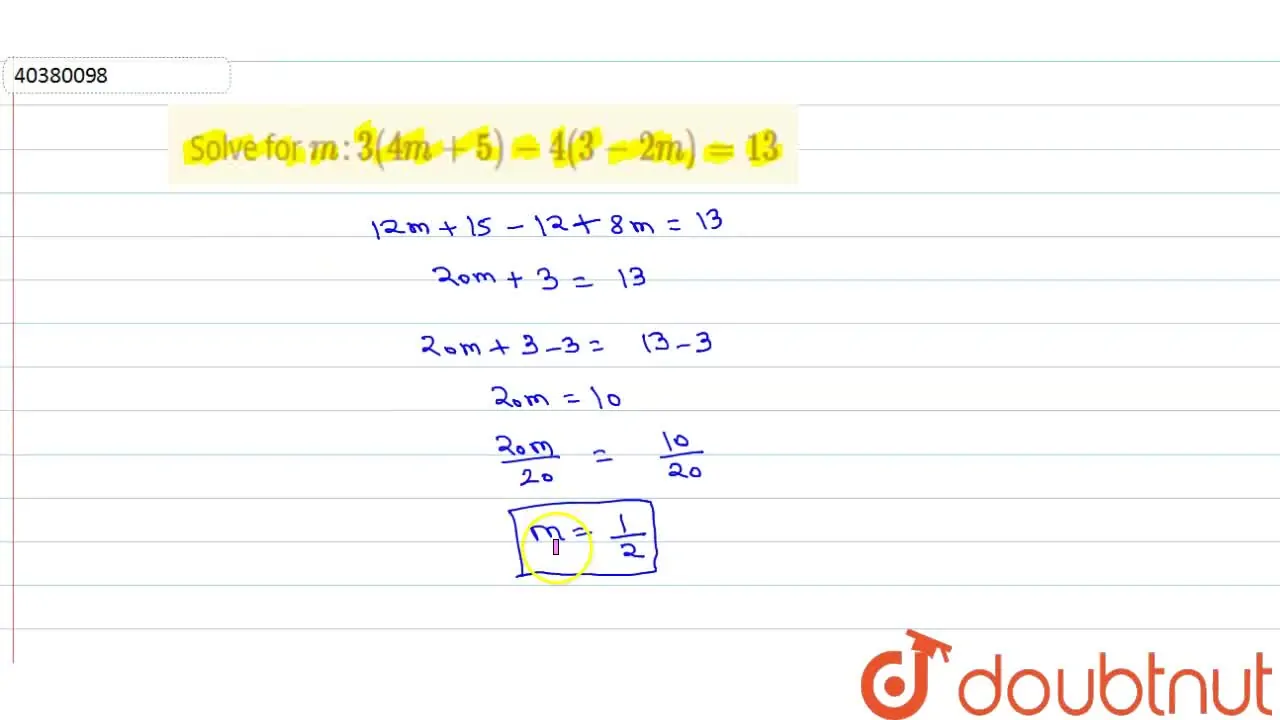 40380098
Solve for m : 3(4m + 5) − 4(3 − 2m) = 13
12m + 15 − 12 + 8m = 13
20m + 3 = 13
20m + 3 − 3 = 13 − 3
20m = 10
20m/20 = 10/20
m = 1/2
doubtnut